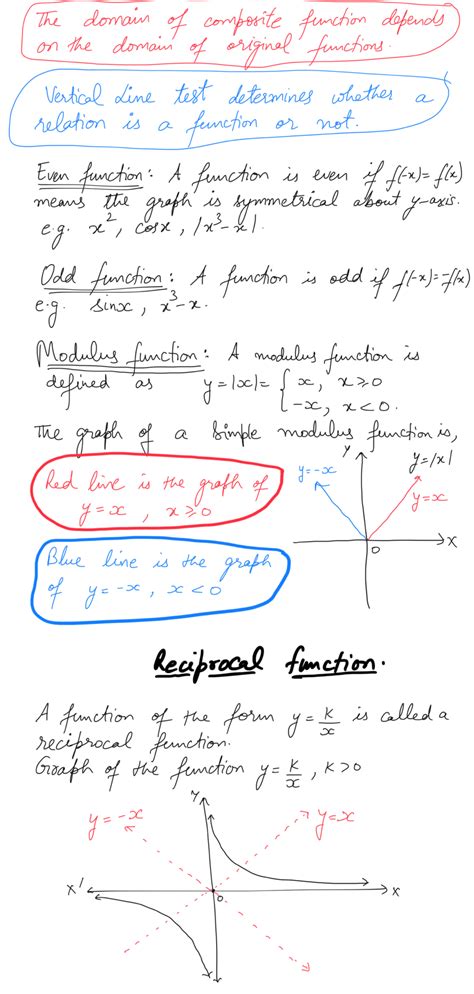 The domain of composite function depends
on the domain of original functions.
Vertical Line test determines whether a
relation is a function or not.
Even function: A function is even if f(-x)= f(x)
means the graph is symmetrical about y-axis.
e.g. x², cosx, |x³-x|.
Odd function: A function is odd if f(-x)=-f(x)
e.g. sinx, x³-x.
Modulus function: A modulus function is
defined as y=|x|= { x, x⩾0
-x, x<0.
The graph of a simple modulus function is,
Red line is the graph of
y=x, x⩾0
Blue line is the graph
of y=-x, x<0
y=-x
Y
y=|x|
y=x
O
X
Reciprocal function.
A function of the form y= k/x is called a
reciprocal function.
Graph of the function y= k/x, k>0
Y
y=-x
y=x
X'
O
X